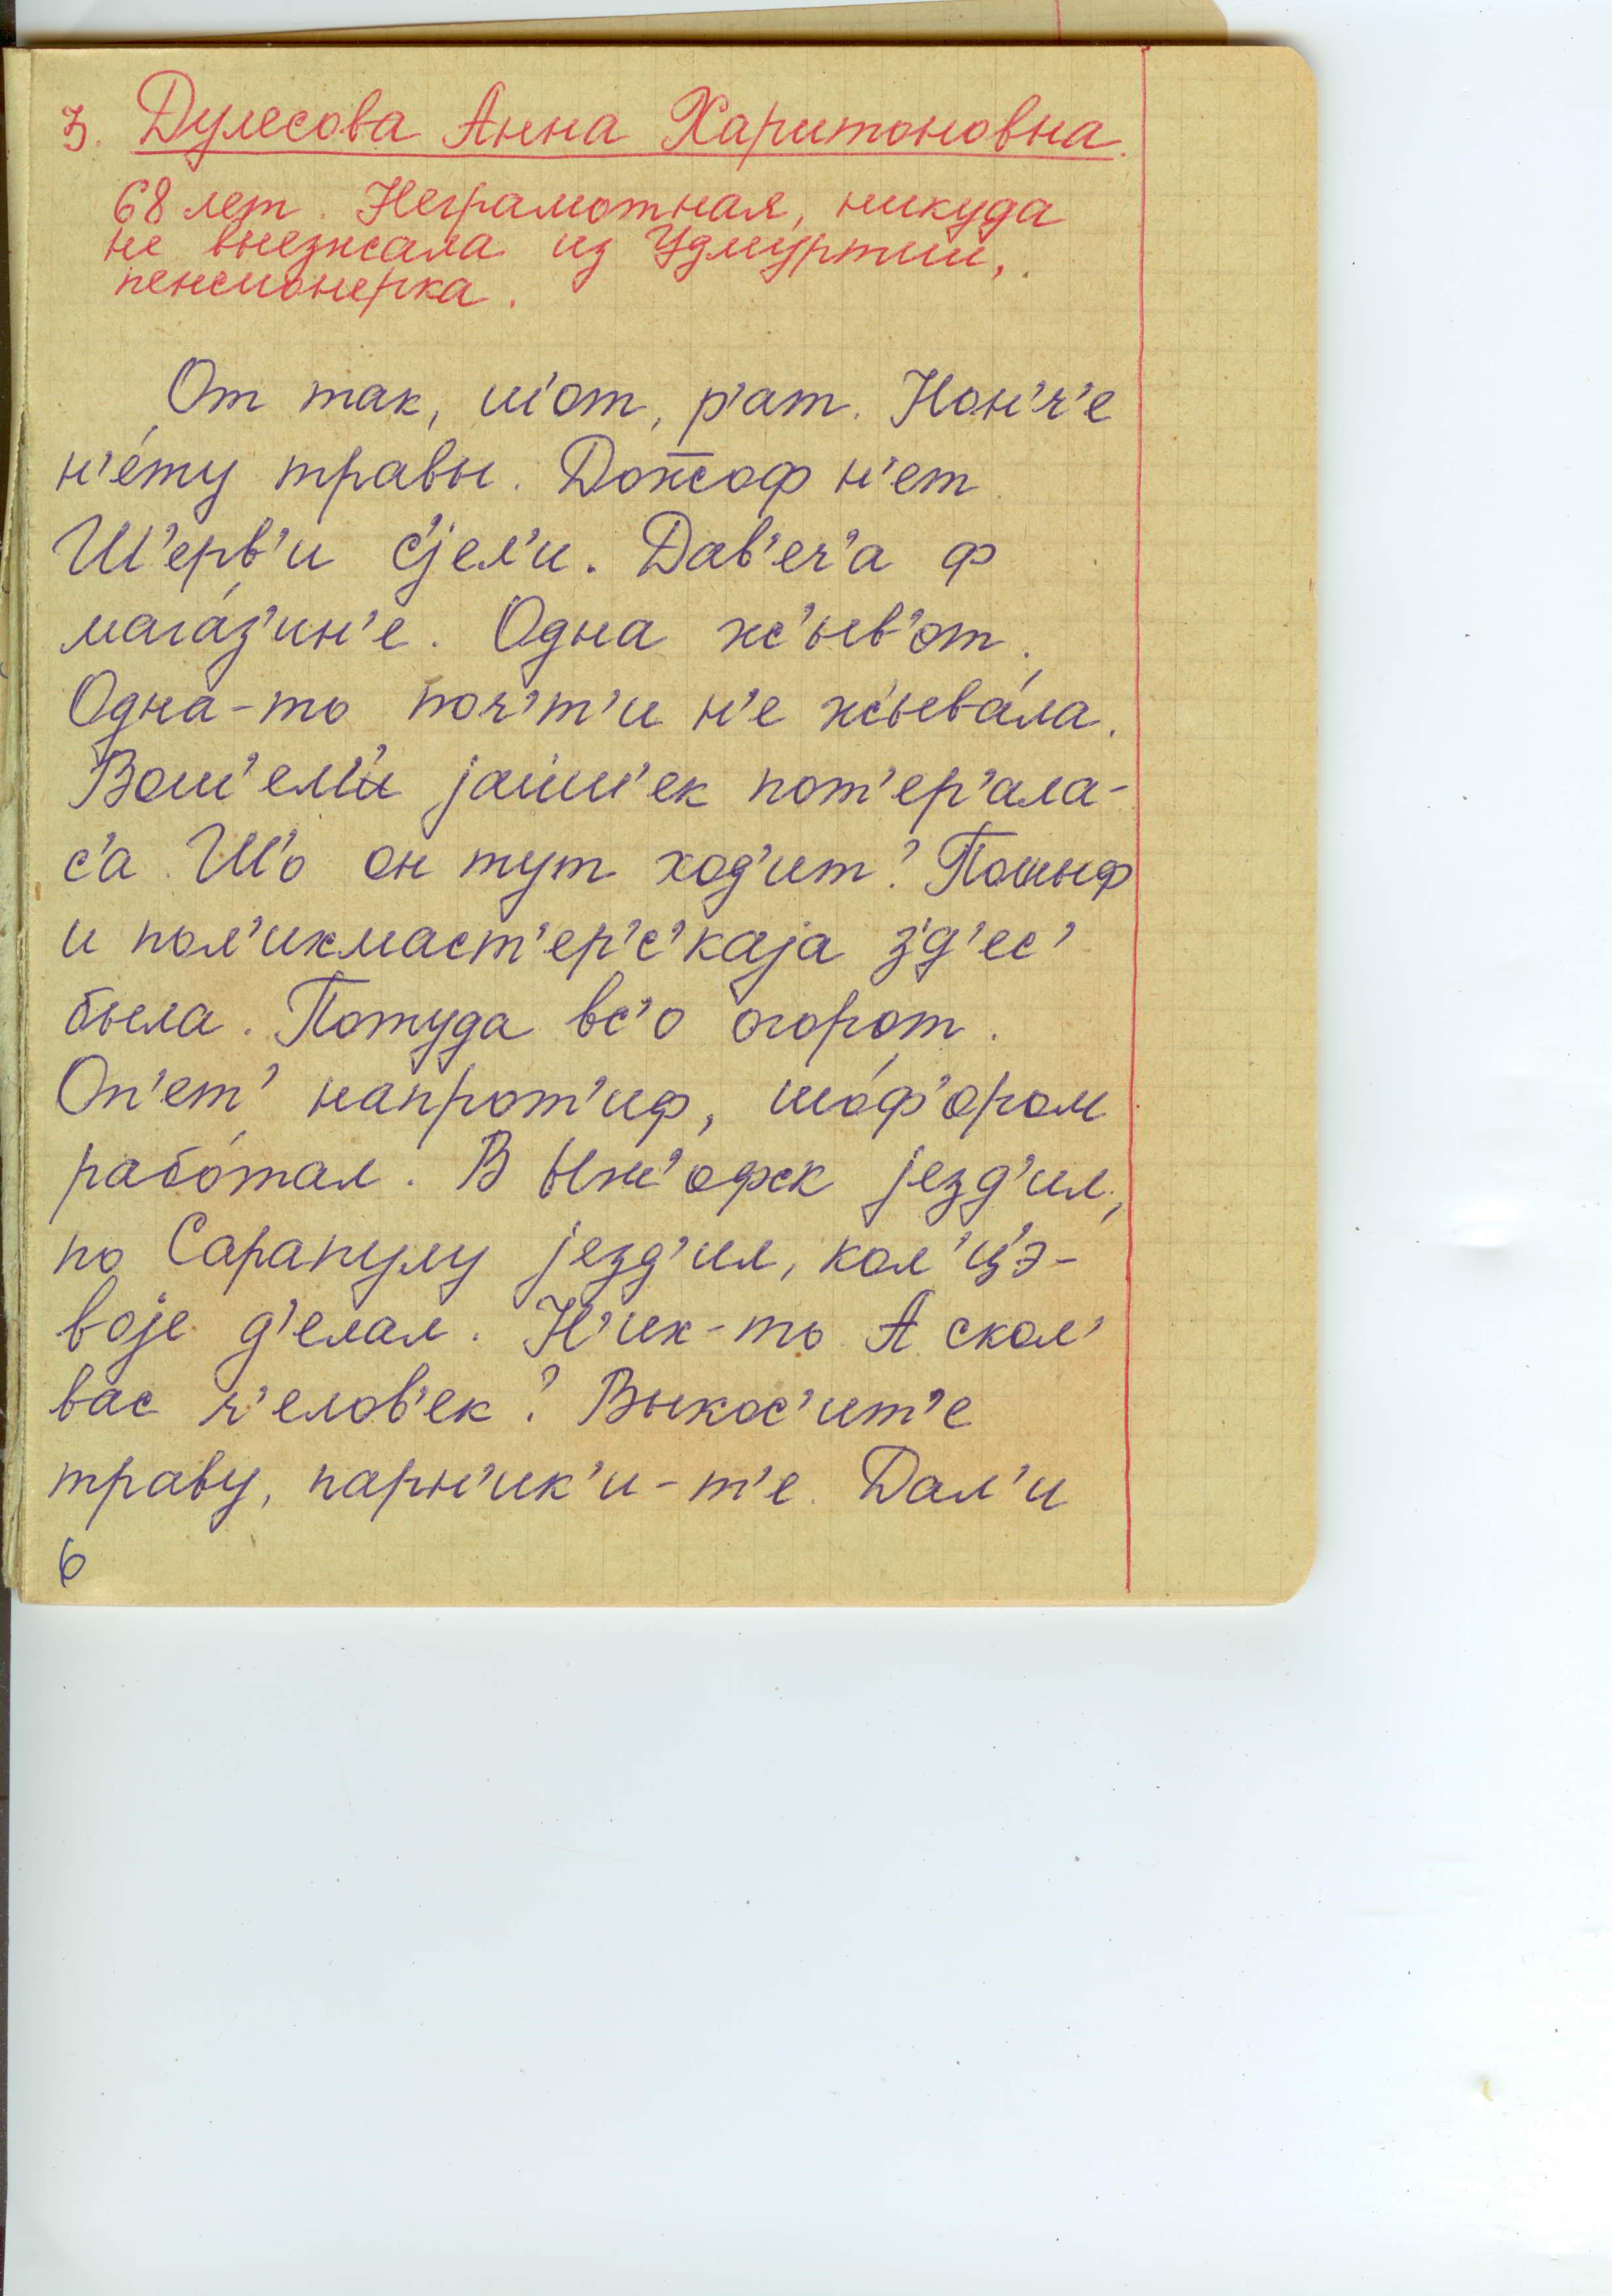 3. Дулесова Анна Харитоновна.
68 лет. Неграмотная, никуда
не выезжала из Удмуртии,
пенсионерка.
От так, ш'от, р'ат. Нон'ч'е
н'е́ту травы. Дожоф н'ет
Ш'ерв'и с'јел'и. Дав'еч'а ф
мага́з'ин'е. Одна ж'ыв'от.
Одна-то поч'т'и н'е жыва́ла.
Вош'ем'и јашш'ек пот'ер'ала-
с'а. Ш'о он тут ход'ит? Пошыф
и пол'икмаст'ер'с'каја з'д'ес'
была. Потуда вс'о огорот.
Оп'ет' напрот'иф, шо́ф'ором
рабо́тал. В Ыж'офск језд'ил,
по Сарапулу језд'ил, кол'ц'э-
воје д'елал. Н'их-то А скол'
вас ч'елов'ек? Выкос'ит'е
траву, парн'ик'и-т'е. Дал'и
6